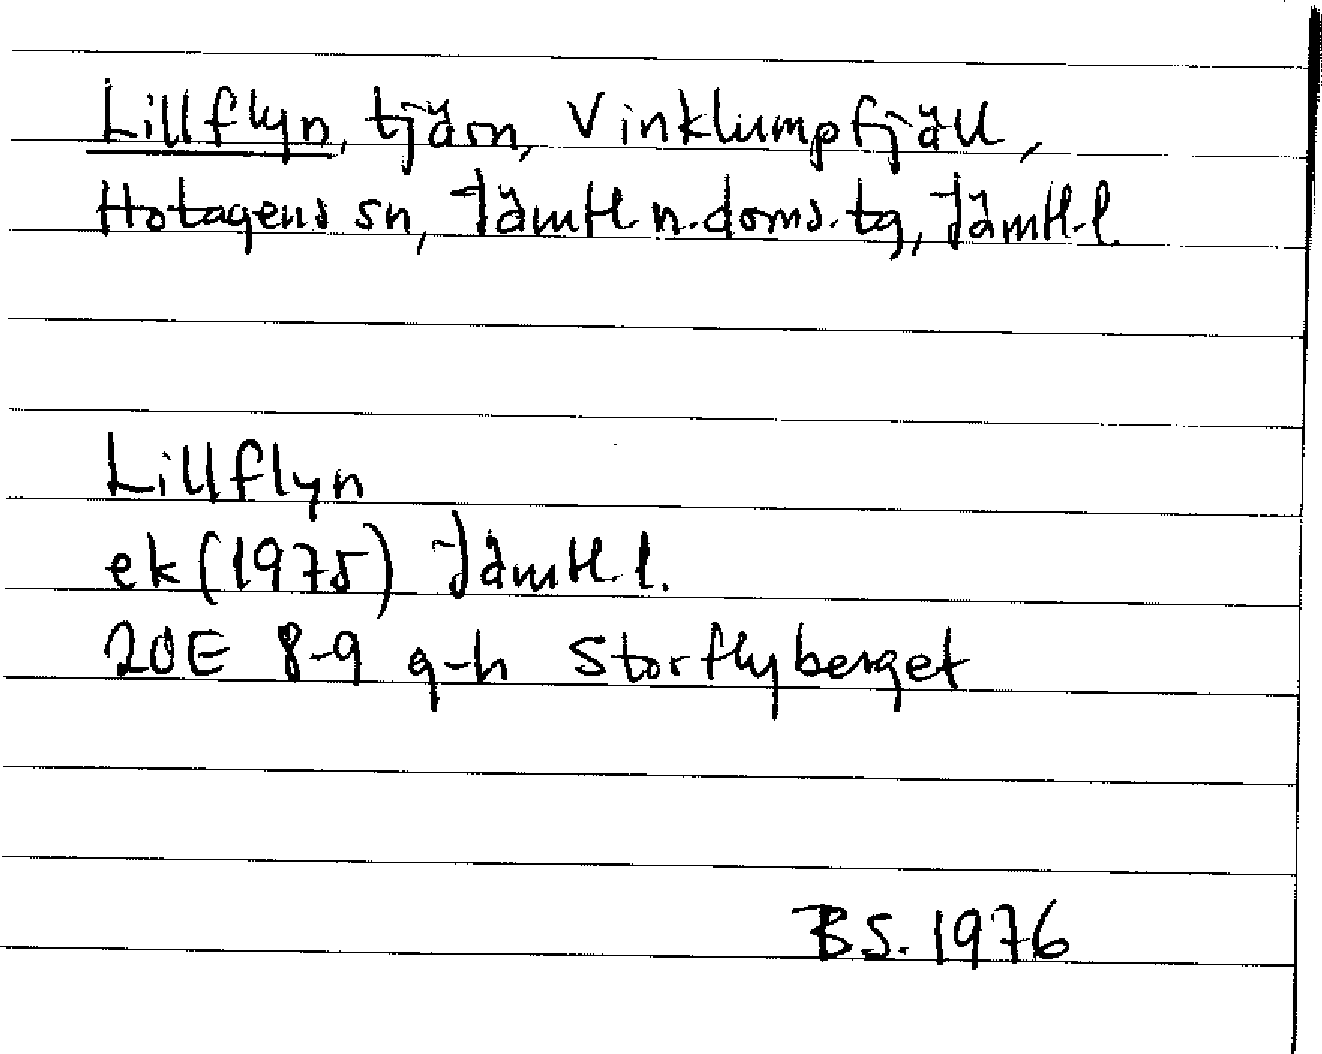 Lillflyn, tjärn, Vinklumpfjäll,
Hotagens sn, Jämtl. n. doms. tg, Jämtl. l.
Lillflyn
ek (1975) Jämtl. l.
20E 8-9 g-h Storflyberget
BS. 1976